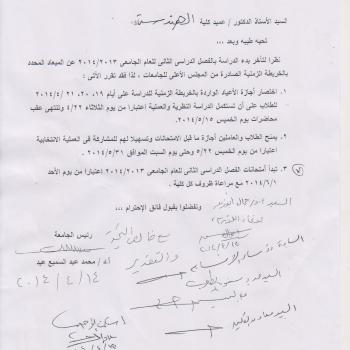 السيد الأستاذ الدكتور / عميد كلية الهندسة
تحية طيبه وبعد ...
نظرا لتأخر بدء الدراسة بالفصل الدراسى الثانى للعام الجامعى ٢٠١٤/٢٠١٣ عن الميعاد المحدد
بالخريطة الزمنية الصادرة من المجلس الأعلى للجامعات ، لذا فقد تقرر الأتى :
١. اختصار أجازة الأعياد الواردة بالخريطة الزمنية للدراسة على أيام ١٩، ٢٠، ٢٠١٤/٤/٢١
للطلاب على أن تستكمل الدراسة النظرية والعملية إعتبارا من يوم الثلاثاء ٤/٢٢ وتنتهى عقب
محاضرات يوم الخميس ٢٠١٤/٥/١٥ .
٢. يمنح الطلاب والعاملين أجازة ما قبل الامتحانات وتسهيلا لهم للمشاركة فى العملية الانتخابية
اعتبارا من يوم الخميس ٥/٢٢ وحتى يوم السبت الموافق ٢٠١٤/٥/٣١ .
٣. تبدأ أمتحانات الفصل الدراسى الثانى للعام الجامعى ٢٠١٤/٢٠١٣ اعتبارا من يوم الأحد
٢٠١٤/٦/١ مع مراعاة ظروف كل كلية .
وتفضلوا بقبول فائق الإحترام ...
رئيس الجامعة
مع خالص التحية
والتقدير
أ.د/ محمد عبد السميع عيد
٢٠١٤/٤/١٤